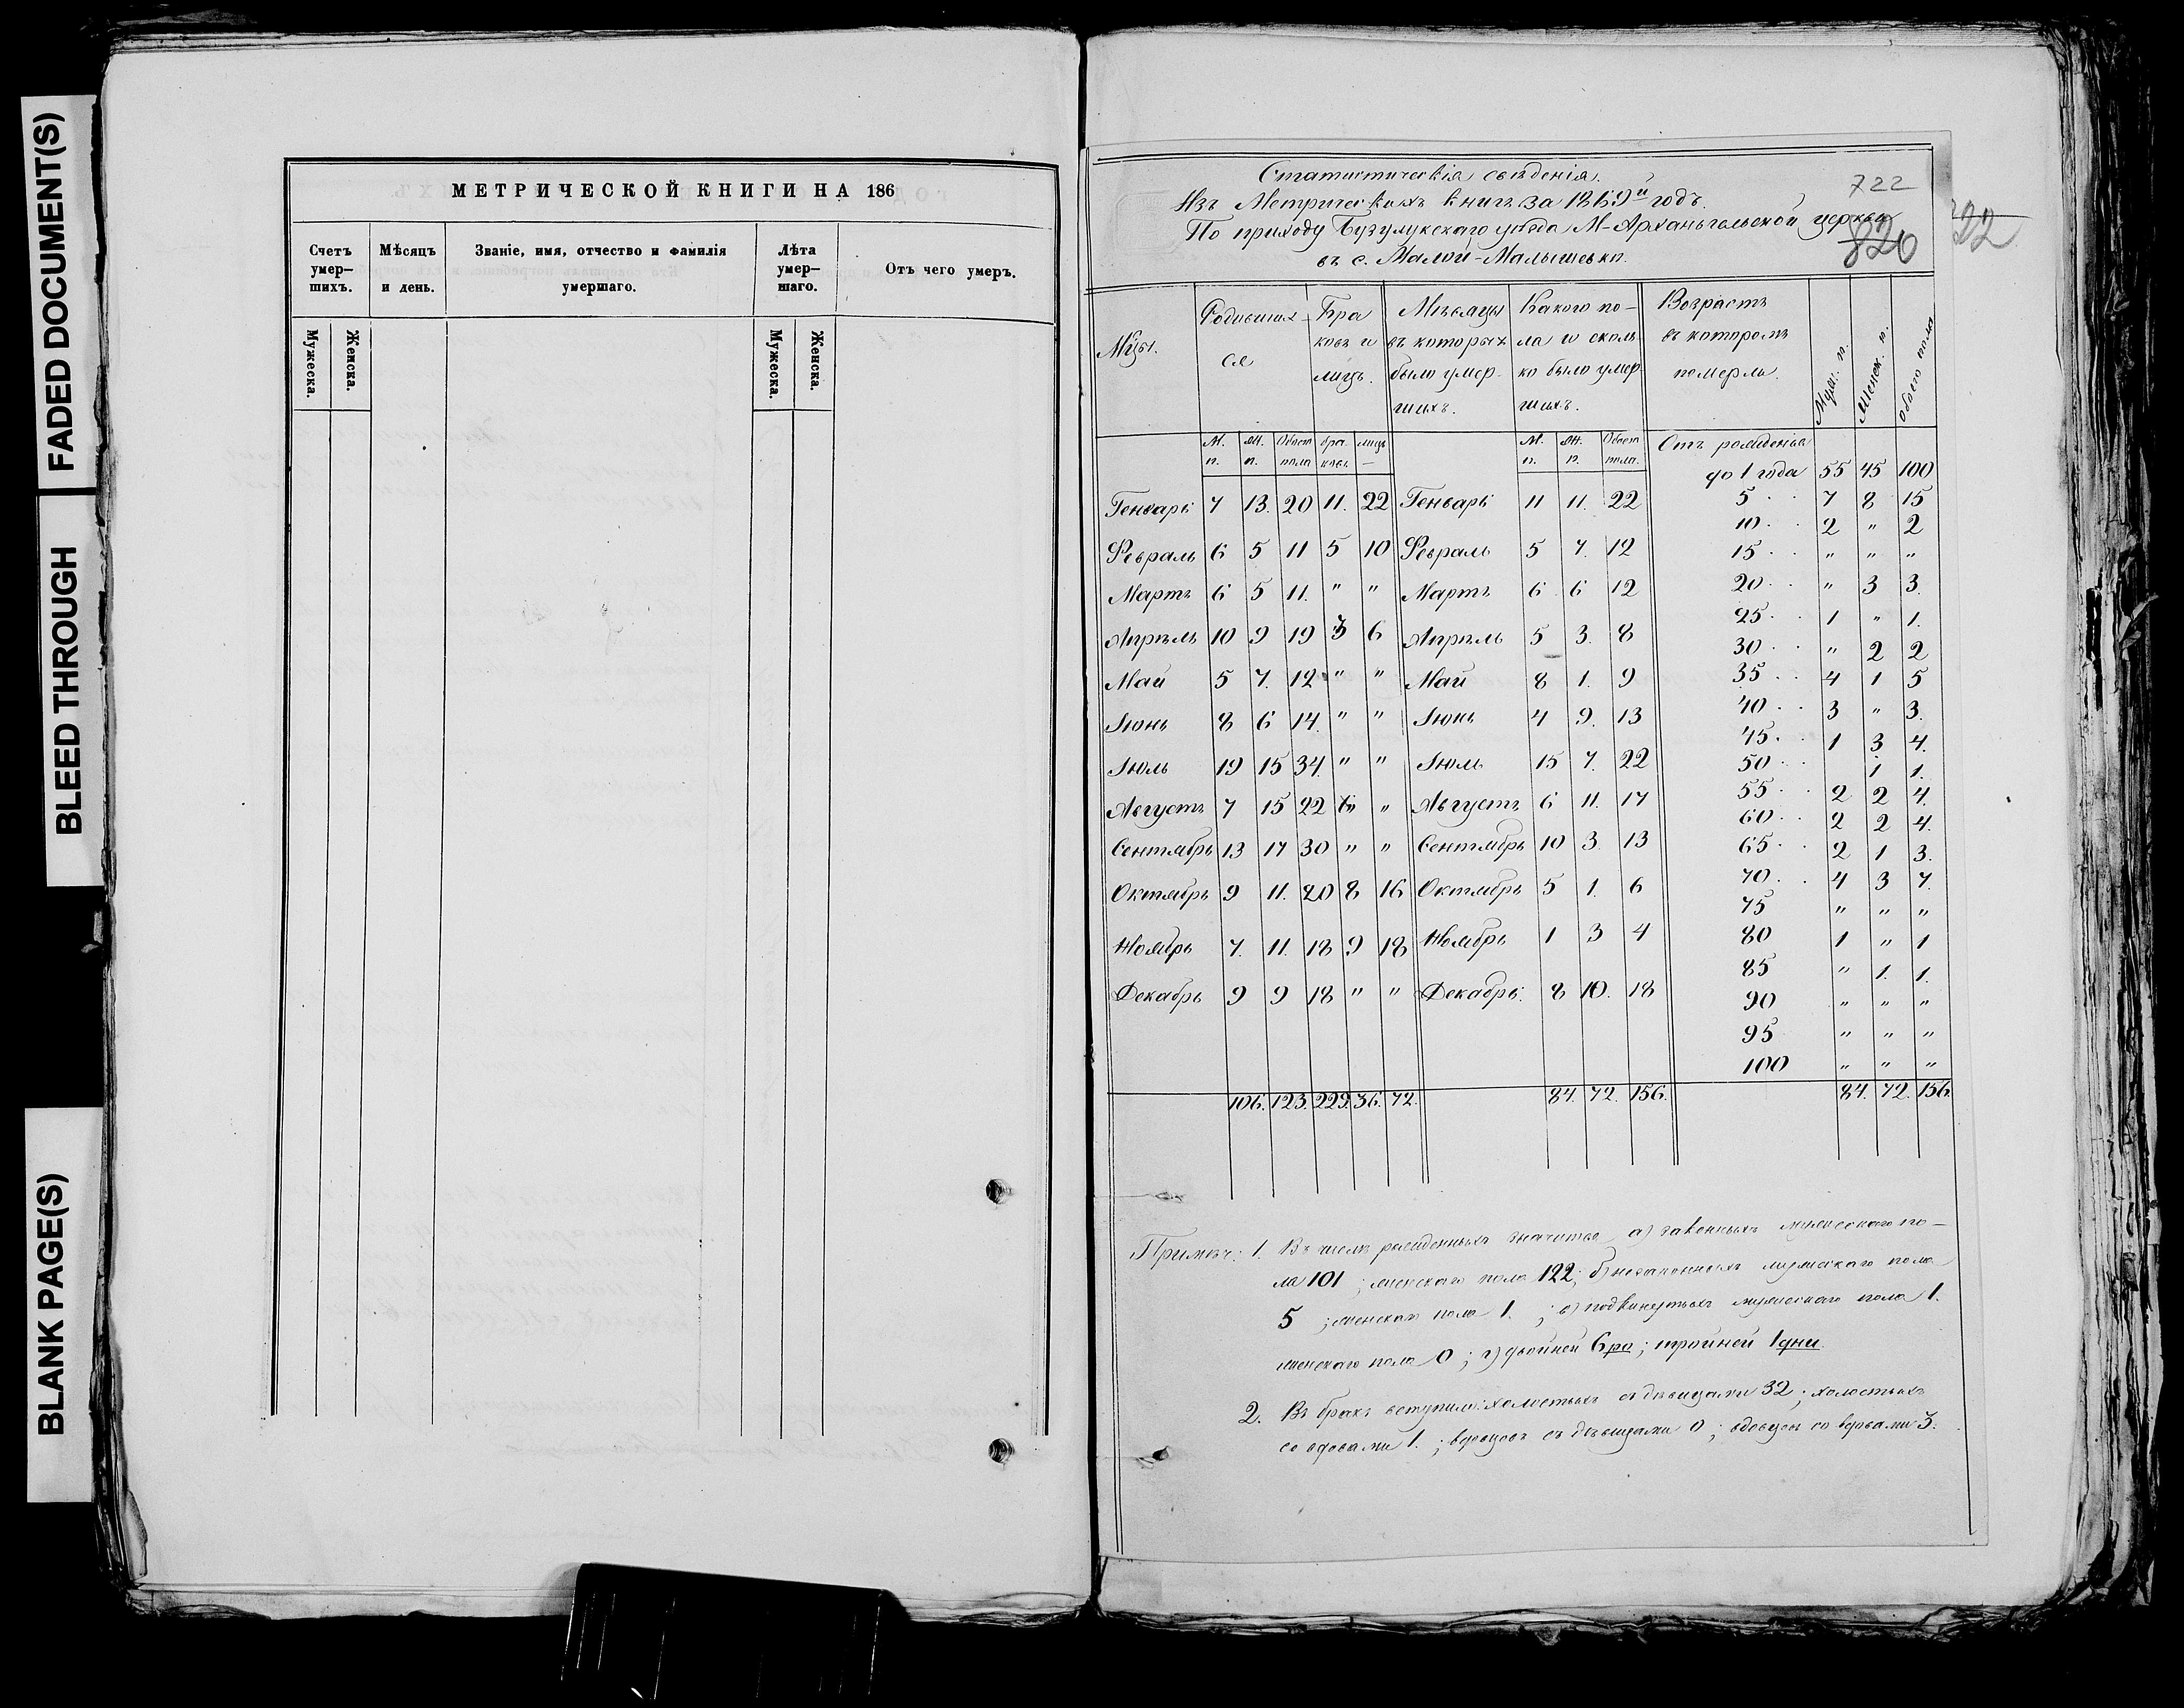 FADED DOCUMENT(S)
BLEED THROUGH
BLANK PAGE(S)
МЕТРИЧЕСКОЙ КНИГИ НА 186
Счетъ умер– шихъ.
Мѣсяцъ и день.
Званіе, имя, отчество и фамилія умершаго.
Лѣта умер– шаго.
Отъ чего умеръ.
Мужеска. Женска. Мужеска. Женска.
Статистическія свѣденія.
722
Изъ Метрическихъ книгъ за 1869й годъ.
По приходу Бузулукскаго уѣзда М-Архангельской церкви
820
22
въ с. Малой-Малышевки.
Мѣсяцы.
Родившихся
Браковъ и лицъ.
Мѣсяцы въ которыхъ было умерших.
Какого пола и сколько было умерших.
Возрастъ въ которомъ померли.
Муж. п.
Женск. п.
Обоего пола
М. п. Ж. п. Обоего пола браковъ лицъ М. п. Ж. п. Обоего пола. Отъ рожденія
до 1 года 55 45 100
Генварь 7 13. 20 11. 22 Генварь 11 11. 22
5 7 8 15
10 2 " 2
Февраль 6 5 11 5 10 Февраль 5 7. 12
15 " " "
Мартъ 6 5 11. " " Мартъ 6 6 12
20 " 3 3.
25 1 " 1.
Апрѣль 10 9 19 3 6 Апрѣль 5 3. 8
30 " 2 2
Май 5 7. 12 " " Май 8 1. 9
35 4 1 5
Іюнь 8 6 14. " " Іюнь 4 9. 13
40 3 " 3.
45 1 3 4.
Іюль 19 15 34. " " Іюль 15 7. 22
50 1 1.
Августъ 7 15 22 " " Августъ 6 11. 17
55 2 2 4.
60 2 2 4.
Сентябрь 13 17 30 " " Сентябрь 10 3. 13
65 2 1 3.
Октябрь 9 11. 20 8 16 Октябрь 5 1. 6
70 4 3 7.
75 " " "
Ноябрь 7. 11. 18 9 18 Ноябрь 1 3 4
80 1 " 1
85 " 1. 1.
Декабрь 9 9 18 " " Декабрь 8 10. 18
90 " " "
95 " " "
100 " " "
106. 123. 229. 36. 72. 84. 72. 156. 84. 72. 156.
Примѣч: 1. Въ числѣ рожденныхъ значится а) законныхъ мужескаго по–
ла 101; женскаго пола 122; б) незаконныхъ мужскаго пола
5; женскаго пола 1.; в) подкинутыхъ мужескаго пола 1.
женскаго пола 0; г) двойней 6ро; тройней 1дни.
2. Въ бракъ вступило: холостыхъ съ дѣвицами 32; холостыхъ
со вдовами 1.; вдовцовъ съ дѣвицами 0; вдовцовъ со вдовами 3.